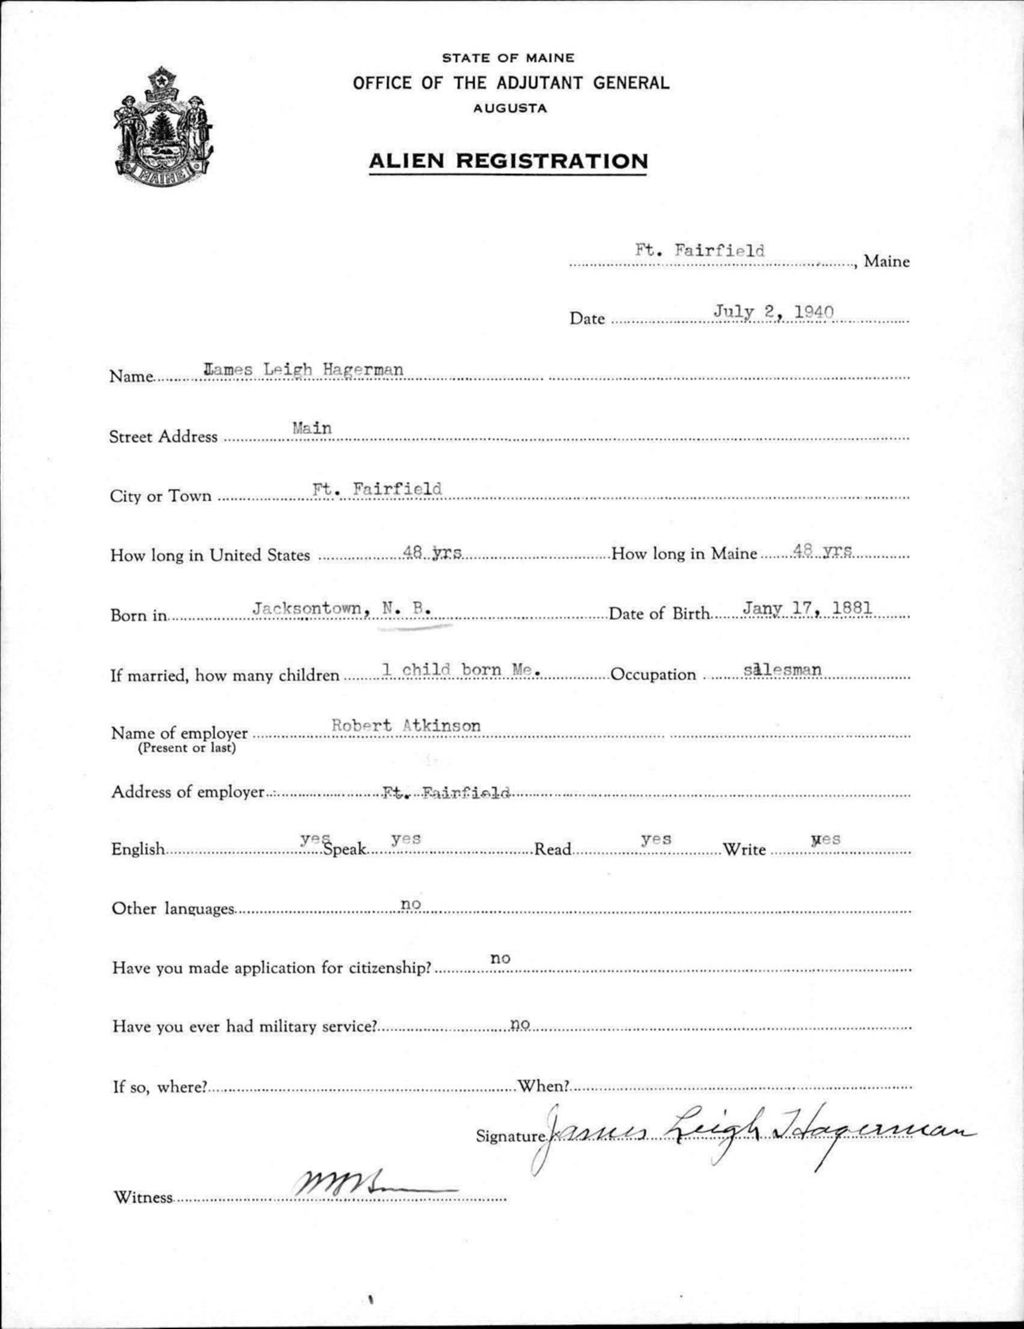 STATE OF MAINE
OFFICE OF THE ADJUTANT GENERAL
AUGUSTA
ALIEN REGISTRATION
MAINE
Ft. Fairfield, Maine
Date July 2, 1940
Name James Leigh Hagerman
Street Address Main
City or Town Ft. Fairfield
How long in United States 48 yrs How long in Maine 48 yrs
Born in Jacksontown, N. B. Date of Birth Jany 17, 1881
If married, how many children 1 child born Me. Occupation salesman
Name of employer Robert Atkinson
(Present or last)
Address of employer Ft. Fairfield
English yes Speak yes Read yes Write yes
Other languages no
Have you made application for citizenship? no
Have you ever had military service? no
If so, where? When?
Signature James Leigh Hagerman
Witness